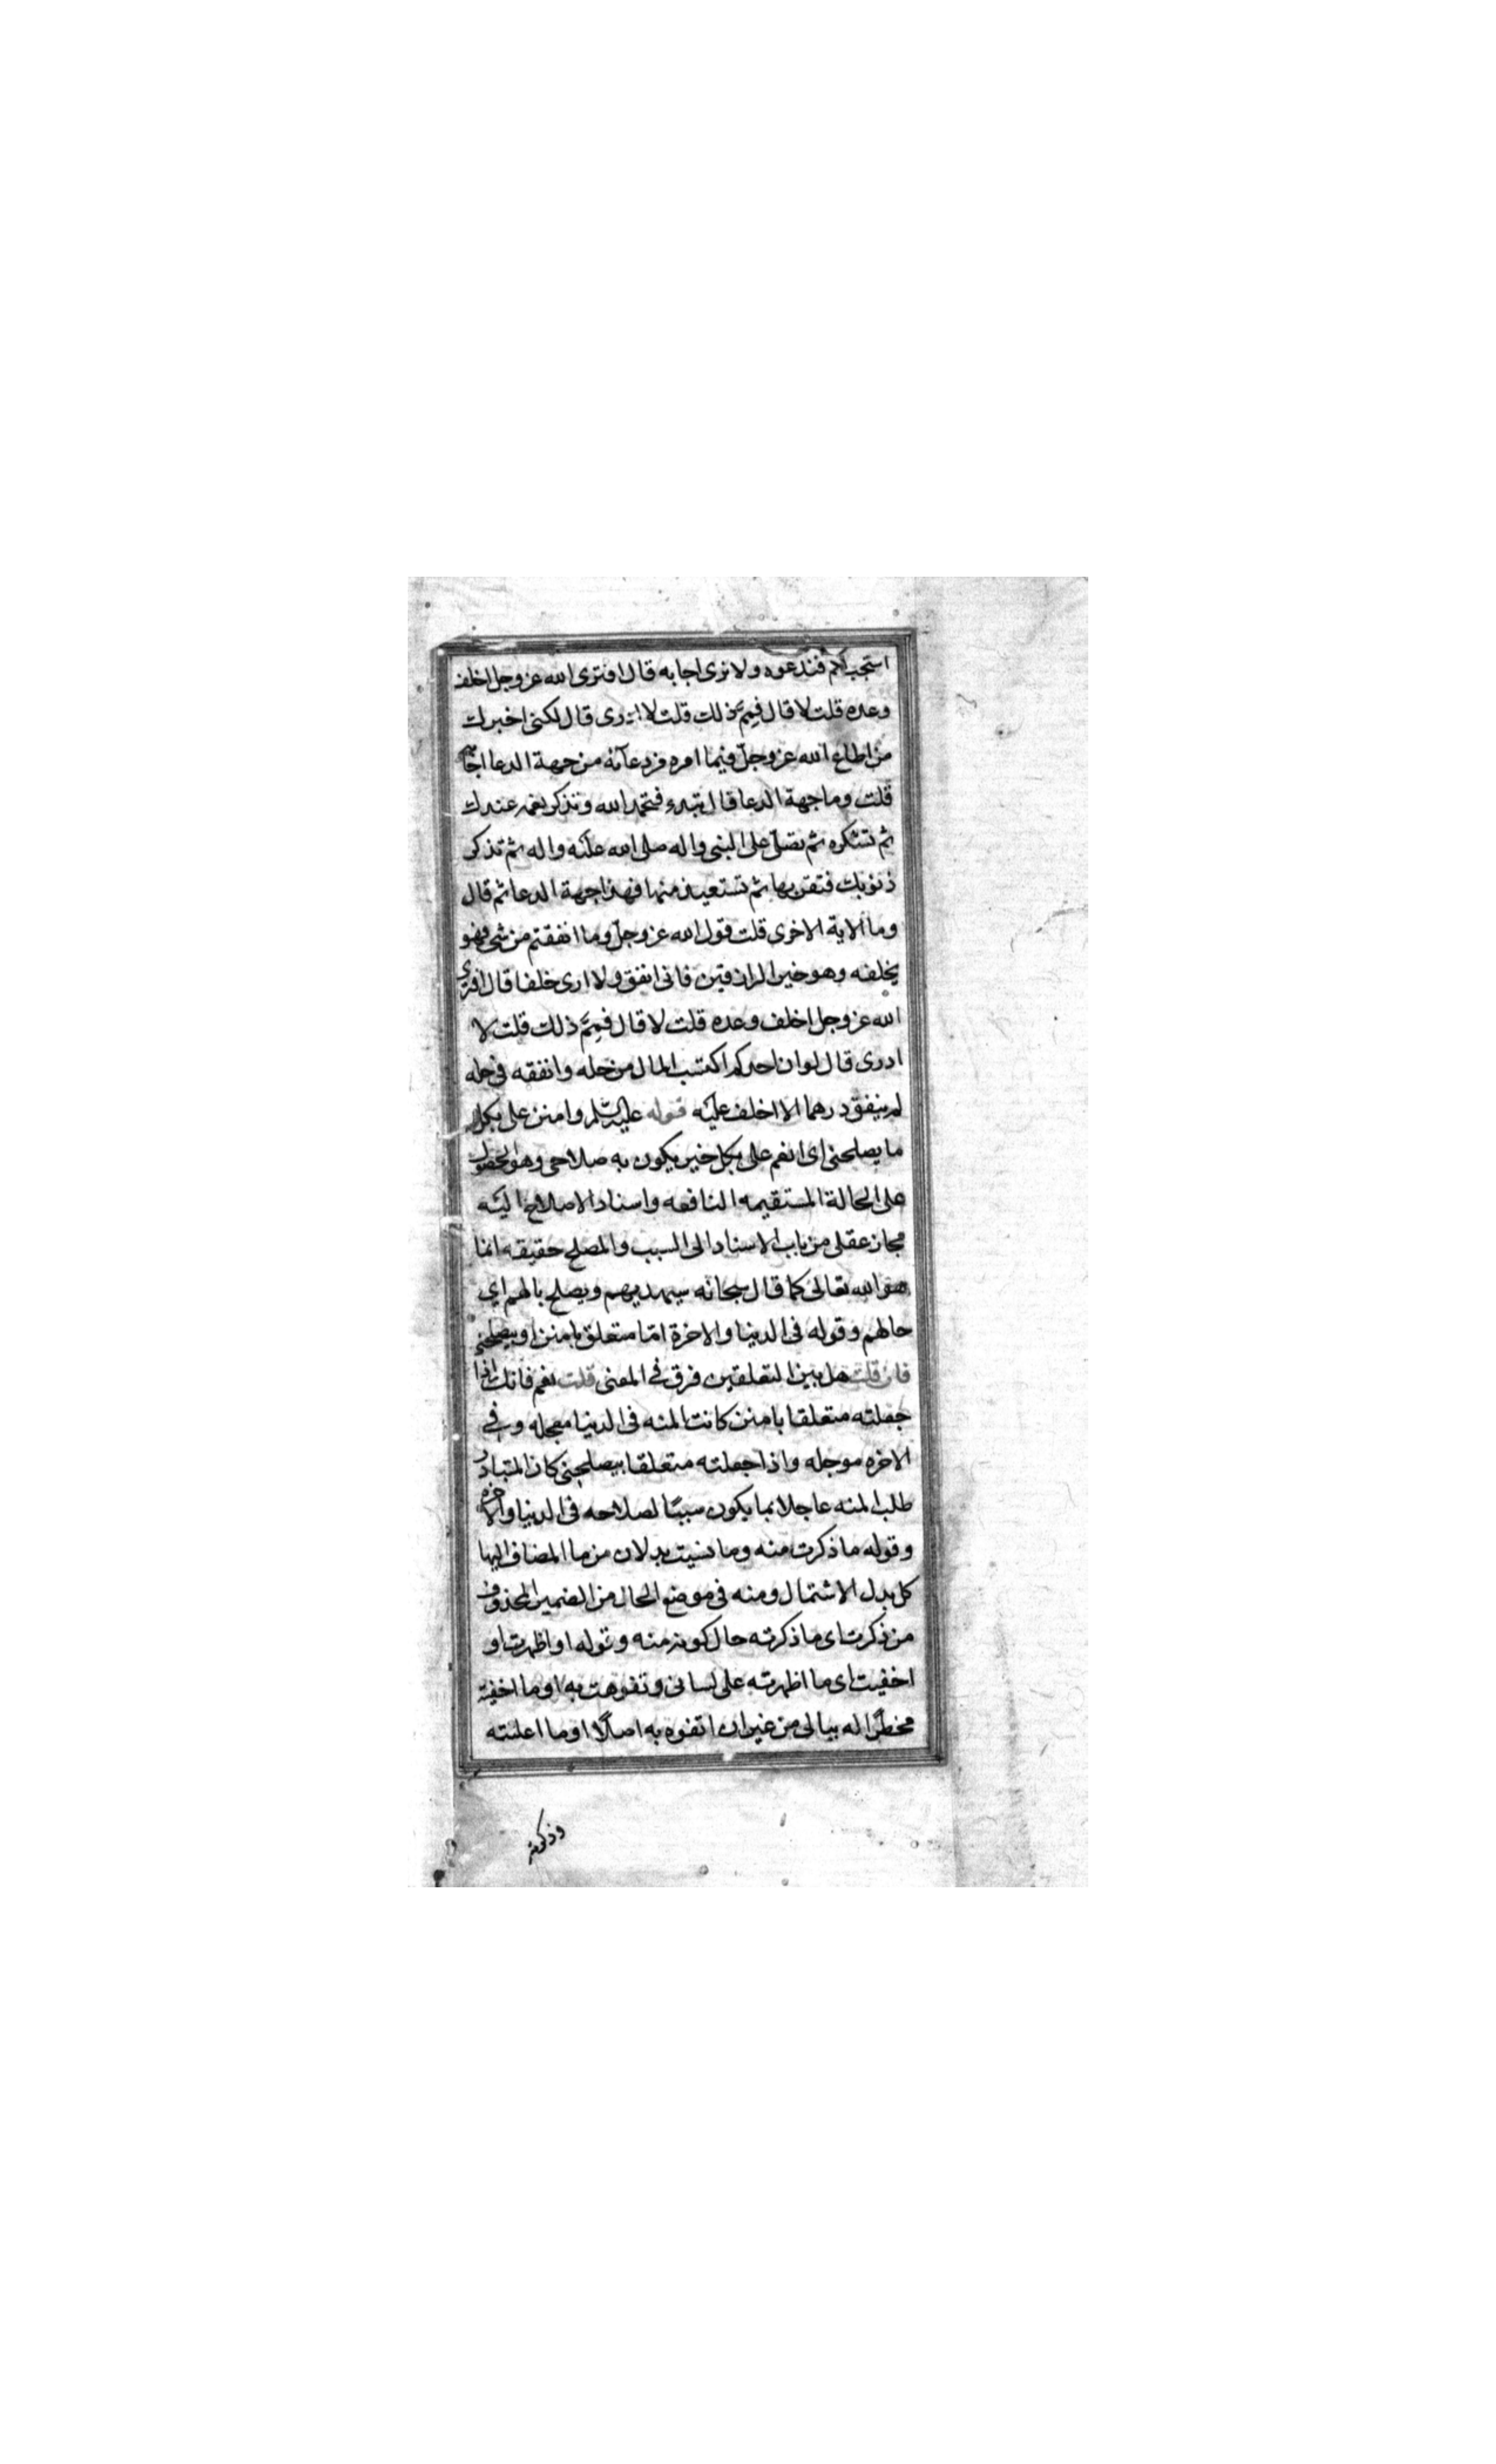 استجب لكم فندعوه ولا نرى اجابه قال افترى الله عز وجل اخلف
وعده قلت لا قال فمم ذلك قلت لا ادرى قال لكنى اخبرك
من اطاع الله عز وجل فيما امره فزدعائه من جهة الدعا اجابه
قلت وما جهة الدعا قال تبدء فتحمد الله وتذكر نعمه عندك
ثم تشكره ثم تصلى على النبى واله صلى الله عليه واله ثم تذكر
ذنوبك فتقر بها ثم تستعيذ منها فهذا جهة الدعا ثم قال
وما الاية الاخرى قلت قول الله عز وجل وما انفقتم من شى فهو
يخلفه وهو خير الرازقين فانى انفق ولا ارى خلفا قال افترى
الله عز وجل اخلف وعده قلت لا قال فمم ذلك قلت لا
ادرى قال لو ان احدكم اكتسب المال من حله وانفقه فى حله
لم ينفق درهما الا اخلف عليه قوله عليه السلم وامنن على بكل
ما يصلحنى اى انعم على بكل خير يكون به صلاحى وهو الحصول
على الحالة المستقيمه النافعه واسناد الاصلاح اليه
مجاز عقلى من باب الاسناد الى السبب والمصلح حقيقه انما
هو الله تعالى كما قال سبحانه سيهديهم ويصلح بالهم اي
حالهم وقوله فى الدنيا والاخرة امّا متعلق بامنن او بيصلحنى
فان قلت هل بين التعلقين فرق فى المعنى قلت نعم فانك اذا
جعلته متعلقا بامنن كانت المنه فى الدنيا معجله وفي
الاخره موجله واذا جعلته متعلقا بيصلحنى كان المتبادر
طلب المنه عاجلا بما يكون سببًا لصلاحه فى الدنيا والاخره
وقوله ما ذكرت منه وما نسيت بدلان من ما المضاف اليها
كل بدل الاشتمال ومنه فى موضع الحال من الضمير المحذوف
من ذكرت اى ما ذكرته حال كونه منه وقوله او اظهرت او
اخفيت اى ما اظهرته على لسانى وتفوهت به او ما اخفيته
مخطرًا له ببالى من غير ان اتفوه به اصلًا او ما اعلنته
وذكرته